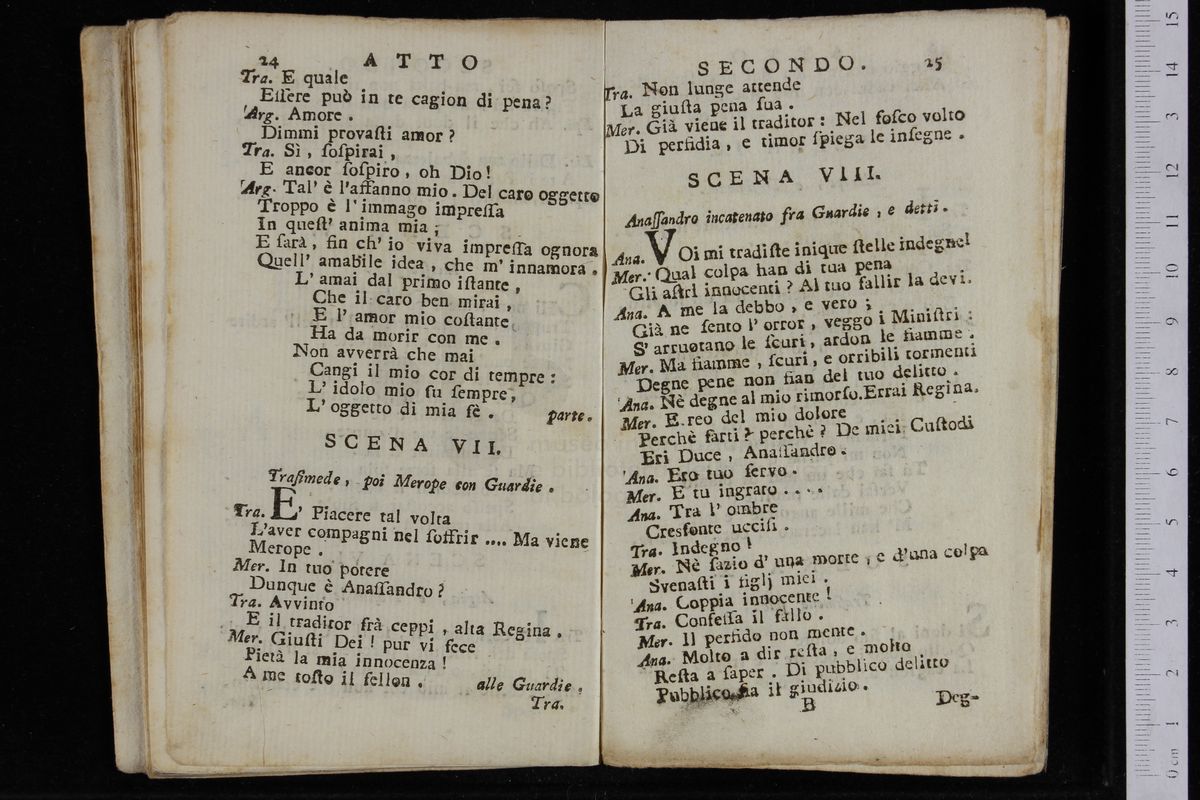 24 ATTO
Tra. E quale
Eſſere può in te cagion di pena?
Arg. Amore.
Dimmi provaſti amor?
Tra. Sì, ſoſpirai,
E ancor ſoſpiro, oh Dio!
Arg. Tal' è l'affanno mio. Del caro oggetto
Troppo è l'immago impreſſa
In queſt' anima mia;
E ſarà, fin ch' io viva impreſſa ognora
Quell' amabile idea, che m' innamora.
L' amai dal primo iſtante,
Che il caro ben mirai,
E l' amor mio coſtante
Ha da morir con me.
Non avverrà che mai
Cangi il mio cor di tempre:
L' idolo mio fu ſempre,
L' oggetto di mia fè. parte.
SCENA VII.
Traſimede, poi Merope con Guardie.
Tra. E' Piacere tal volta
L'aver compagni nel ſoffrir .... Ma viene
Merope.
Mer. In tuo potere
Dunque è Anaſſandro?
Tra. Avvinto
E il traditor frà ceppi, alta Regina.
Mer. Giuſti Dei! pur vi fece
Pietà la mia innocenza!
A me toſto il fellon. alle Guardie.
Tra.
SECONDO. 25
Tra. Non lunge attende
La giuſta pena ſua.
Mer. Già viene il traditor: Nel foſco volto
Di perfidia, e timor ſpiega le inſegne.
SCENA VIII.
Anaſſandro incatenato fra Guardie, e detti.
Ana. VOi mi tradiſte inique ſtelle indegne!
Mer. Qual colpa han di tua pena
Gli aſtri innocenti? Al tuo fallir la devi.
Ana. A me la debbo, e vero;
Già ne ſento l' orror, veggo i Miniſtri:
S' arruotano le ſcuri, ardon le fiamme.
Mer. Ma fiamme, ſcuri, e orribili tormenti
Degne pene non fian del tuo delitto.
Ana. Nè degne al mio rimorſo. Errai Regina.
Mer. E reo del mio dolore
Perchè farti? perchè? De miei Cuſtodi
Eri Duce, Anaſſandro.
Ana. Ero tuo ſervo.
Mer. E tu ingrato ....
Ana. Tra l' ombre
Cresfonte ucciſi.
Tra. Indegno!
Mer. Nè ſazio d' una morte, e d'una colpa
Svenaſti i figlj miei.
Ana. Coppia innocente!
Tra. Confeſſa il fallo.
Mer. Il perfido non mente.
Ana. Molto a dir reſta, e molto
Reſta a ſaper. Di pubblico delitto
Pubblico fia il giudizio.
B Deg-
0 cm 1 2 3 4 5 6 7 8 9 10 11 12 3 14 15